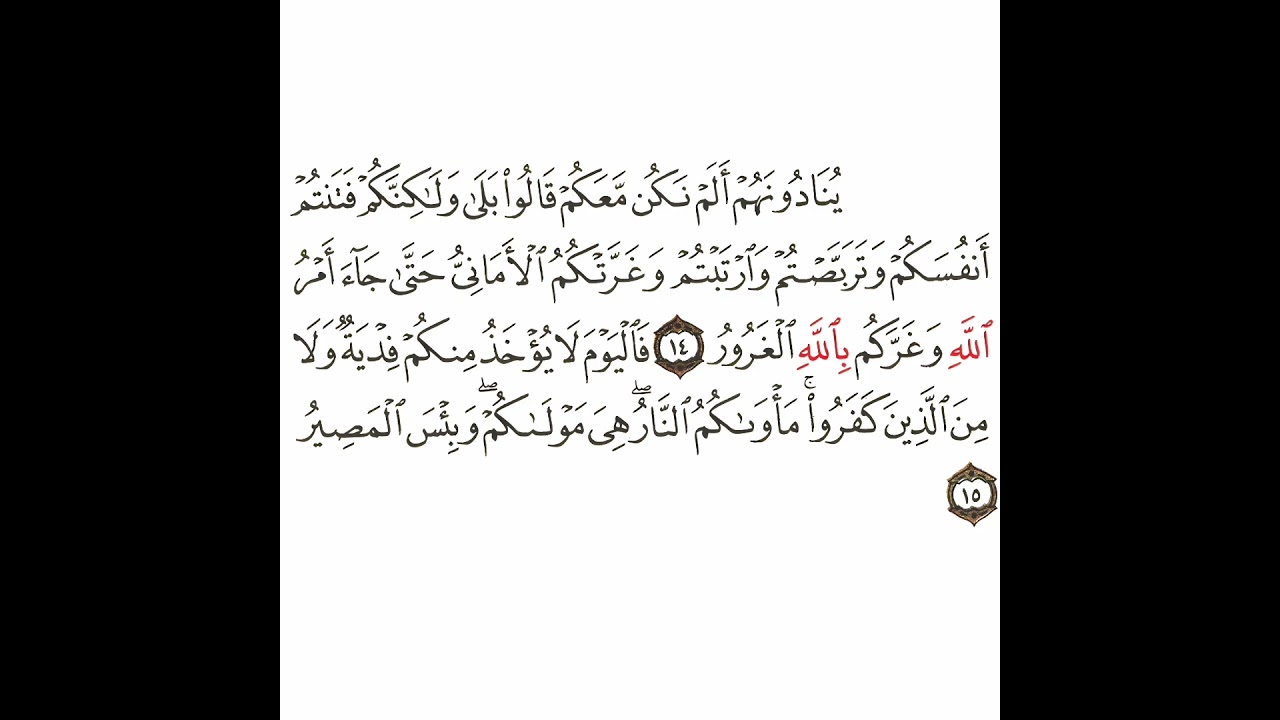 يُنَادُونَهُمْ أَلَمْ نَكُن مَّعَكُمْ قَالُوا۟ بَلَىٰ وَلَـٰكِنَّكُمْ فَتَنتُمْ
أَنفُسَكُمْ وَتَرَبَّصْتُمْ وَٱرْتَبْتُمْ وَغَرَّتْكُمُ ٱلْأَمَانِىُّ حَتَّىٰ جَآءَ أَمْرُ
ٱللَّهِ وَغَرَّكُم بِٱللَّهِ ٱلْغَرُورُ ١٤ فَٱلْيَوْمَ لَا يُؤْخَذُ مِنكُمْ فِدْيَةٌ وَلَا
مِنَ ٱلَّذِينَ كَفَرُوا۟ ۚ مَأْوَىٰكُمُ ٱلنَّارُ ۖ هِىَ مَوْلَىٰكُمْ ۖ وَبِئْسَ ٱلْمَصِيرُ
١٥